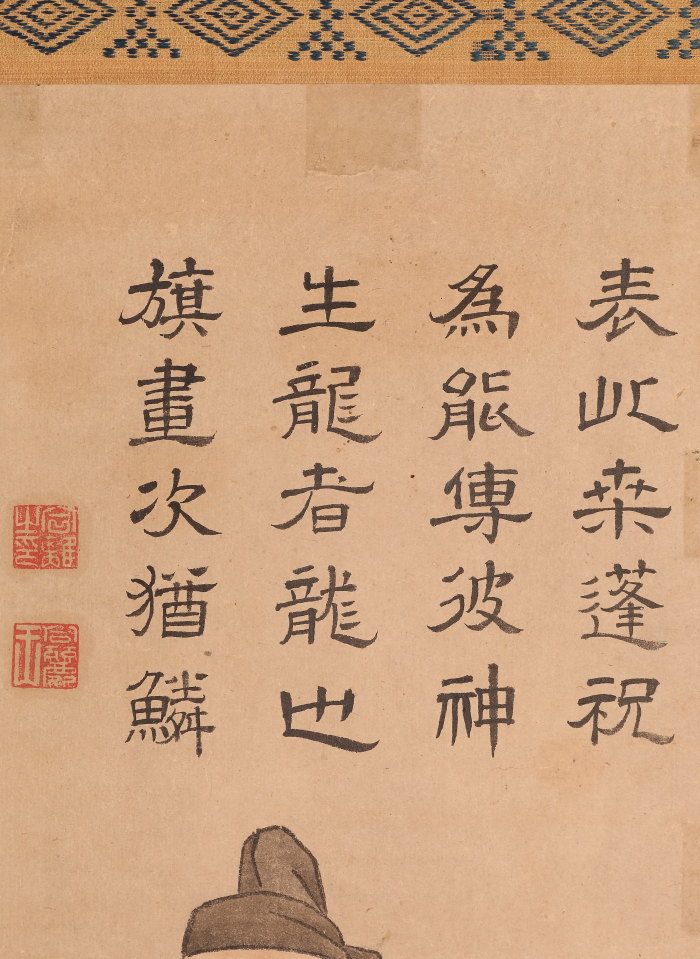 表此桒蓬祝
為能傳彼神
生龍者龍也
旗畫次猶鱗